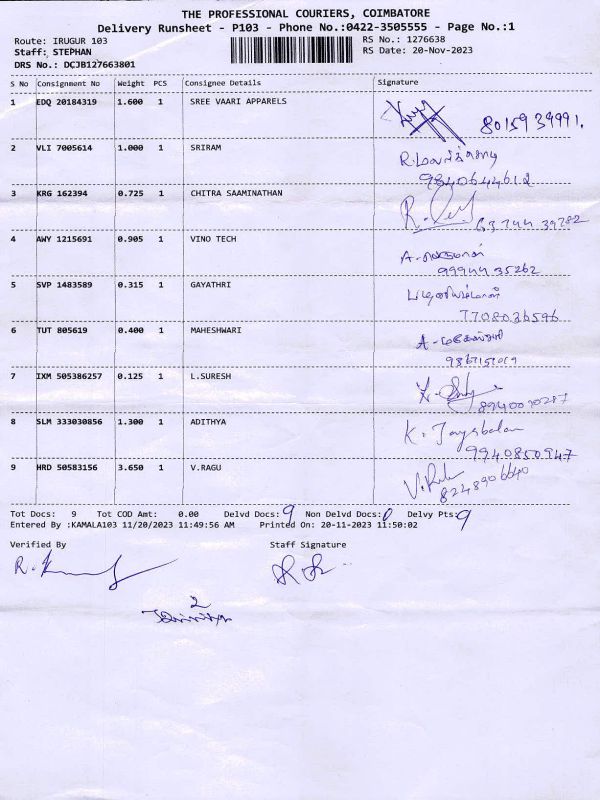 THE PROFESSIONAL COURIERS, COIMBATORE
Delivery Runsheet - P103 - Phone No.:0422-3505555 - Page No.:1
Route: IRUGUR 103 RS No.: 1276638
Staff: STEPHAN RS Date: 20-Nov-2023
DRS No.: DCJB127663801
S No Consignment No Weight PCS Consignee Details Signature
1 EDQ 20184319 1.600 1 SREE VAARI APPARELS
8015939991.
2 VLI 7005614 1.000 1 SRIRAM
9840644612
3 KRG 162394 0.725 1 CHITRA SAAMINATHAN
63744 39782
4 AWY 1215691 0.905 1 VINO TECH
99944 35262
5 SVP 1483589 0.315 1 GAYATHRI
7708036596
6 TUT 805619 0.400 1 MAHESHWARI
7 IXM 505386257 0.125 1 L.SURESH
8 SLM 333030856 1.300 1 ADITHYA
K. Jayabalan
9940850947
9 HRD 50583156 3.650 1 V.RAGU
8248906640
Tot Docs: 9 Tot COD Amt: 0.00 Delvd Docs: 9 Non Delvd Docs: 0 Delvy Pts: 9
Entered By :KAMALA103 11/20/2023 11:49:56 AM Printed On: 20-11-2023 11:50:02
Verified By Staff Signature
2